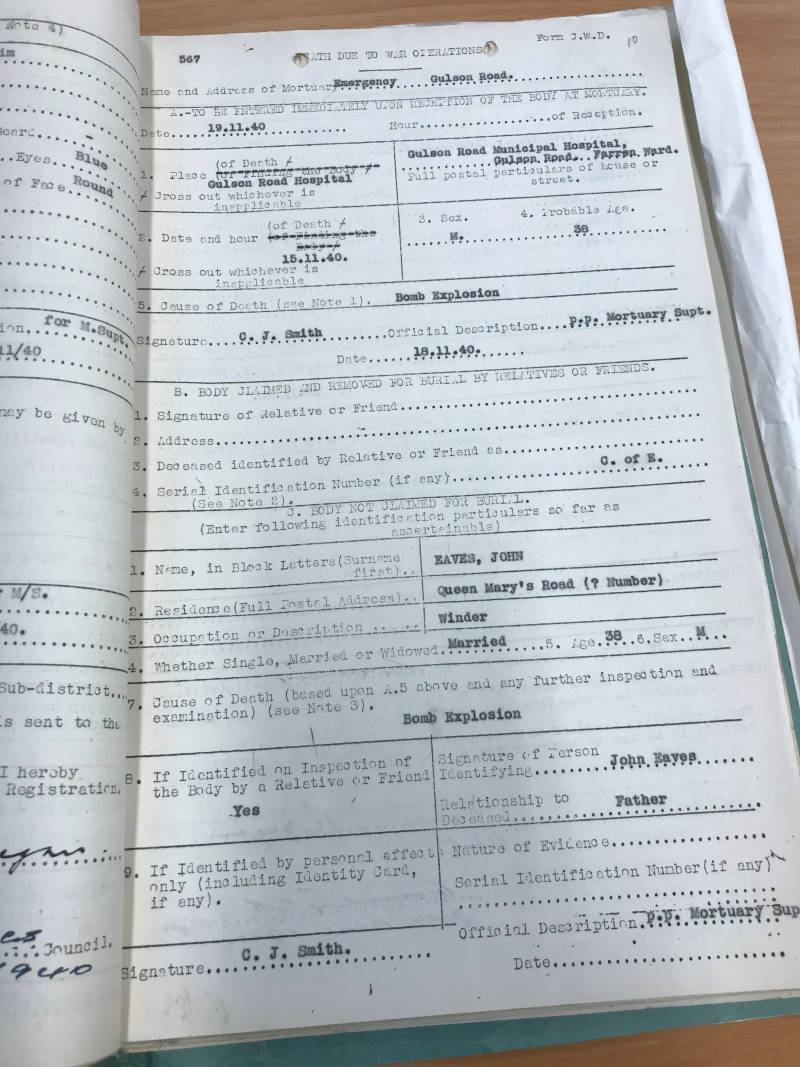 Note 4)
Board....-
..Eyes.. Blue
of Face. Round
for M.Supt.
11/40
may be given by
M/S.
40.
Sub-district...
is sent to the
I hereby
Registration.
Council.
1940
567
DEATH DUE TO WAR OPERATIONS
Form C.W.D.
Name and Address of Mortuary Emergency Gulson Road.
A.-TO BE ENTERED IMMEDIATELY UPON RECEPTION OF THE BODY AT MORTUARY.
Date.....19.11.40............ Hour................of Reception.
1. Place (of Death /
(of Finding the Body /
Gulson Road Hospital
/ Cross out whichever is
inapplicable
Gulson Road Municipal Hospital,
Gulson Road.. Farren Ward.
Full postal particulars of house or
street.
2. Date and hour (of Death /
(of Finding the
Body /
15.11.40.
/ Cross out whichever is
inapplicable
3. Sex. 4. Probable Age.
M. 38
5. Cause of Death (see Note 1). Bomb Explosion
Signature....C. J. Smith.......Official Description....p.p. Mortuary Supt.
Date......18.11.40.......
B. BODY CLAIMED AND REMOVED FOR BURIAL BY RELATIVES OR FRIENDS.
1. Signature of Relative or Friend....................
2. Address....................
3. Deceased identified by Relative or Friend as....................
4. Serial Identification Number (if any)........C. of E.
(See Note 2).
C. BODY NOT CLAIMED FOR BURIAL.
(Enter following identification particulars so far as
ascertainable)
1. Name, in Block Letters(Surname
first)..
EAVES, JOHN
2. Residence(Full Postal Address)..
Queen Mary's Road (? Number)
3. Occupation or Description .. ....
Winder
4. Whether Single, Married or Widowed.Married......5. Age.38..6.Sex..M...
7. Cause of Death (based upon A.5 above and any further inspection and
examination) (see Note 3).
Bomb Explosion
8. If Identified on Inspection of
the Body by a Relative or Friend
Yes
Signature of Person
Identifying.........John Eaves.......
Relationship to
Deceased.........Father.........
9. If Identified by personal effects
only (including Identity Card,
if any).
Nature of Evidence..................
Serial Identification Number(if any)
Official Description.p.p. Mortuary Sup
Signature....C. J. Smith...........
Date..........................